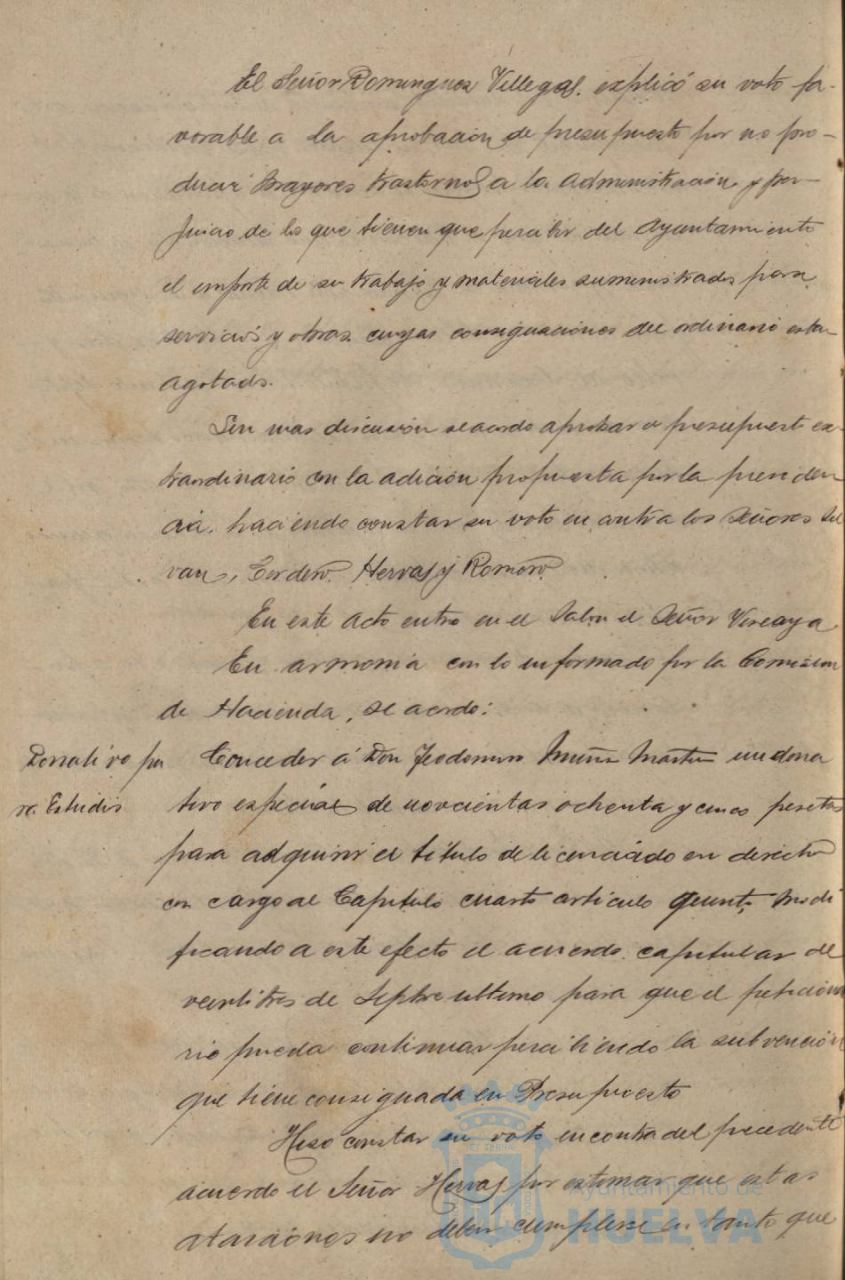 El Señor Dominguez Villegas. explicó su voto fa-
vorable a la aprobacion de presupuesto por no pro-
ducir mayores trastornos a la administracion y per-
juicio de lo que tienen que percibir del Ayuntamiento
el importe de su trabajo y materiales suministrados para
servicios y obras cuyas consignaciones del ordinario estan
agotads.
Sin mas discusion se acordo aprobar el presupuesto ex-
traordinario con la adicion propuesta por la presiden
cia, haciendo constar su voto en contra los Señores Sil
van, Cordero. Hervas y Romero.
En este acto entro en el Salon el Señor Vizcaya
En armonia con lo informado por la Comision
de Hacienda, se acordo:
Donativo pa
ra Estudios
Conceder á Don Teodomiro Muñiz Martin un dona
tivo especial de novecientas ochenta y cinco pesetas
para adquirir el titulo de licenciado en derecho
con cargo al Capitulo cuarto articulo quinto, modi
ficando a este efecto el acuerdo capitular del
veintitres de Septbre ultimo para que el peticiona
rio pueda continuar percibiendo la subvencion
que tiene consignada en Presupuesto
Hizo constar su voto en contra del precedente
acuerdo el Señor Hervas por estimar que estas
atenciones no deben cumplirse en tanto que
Ayuntamiento de
HUELVA